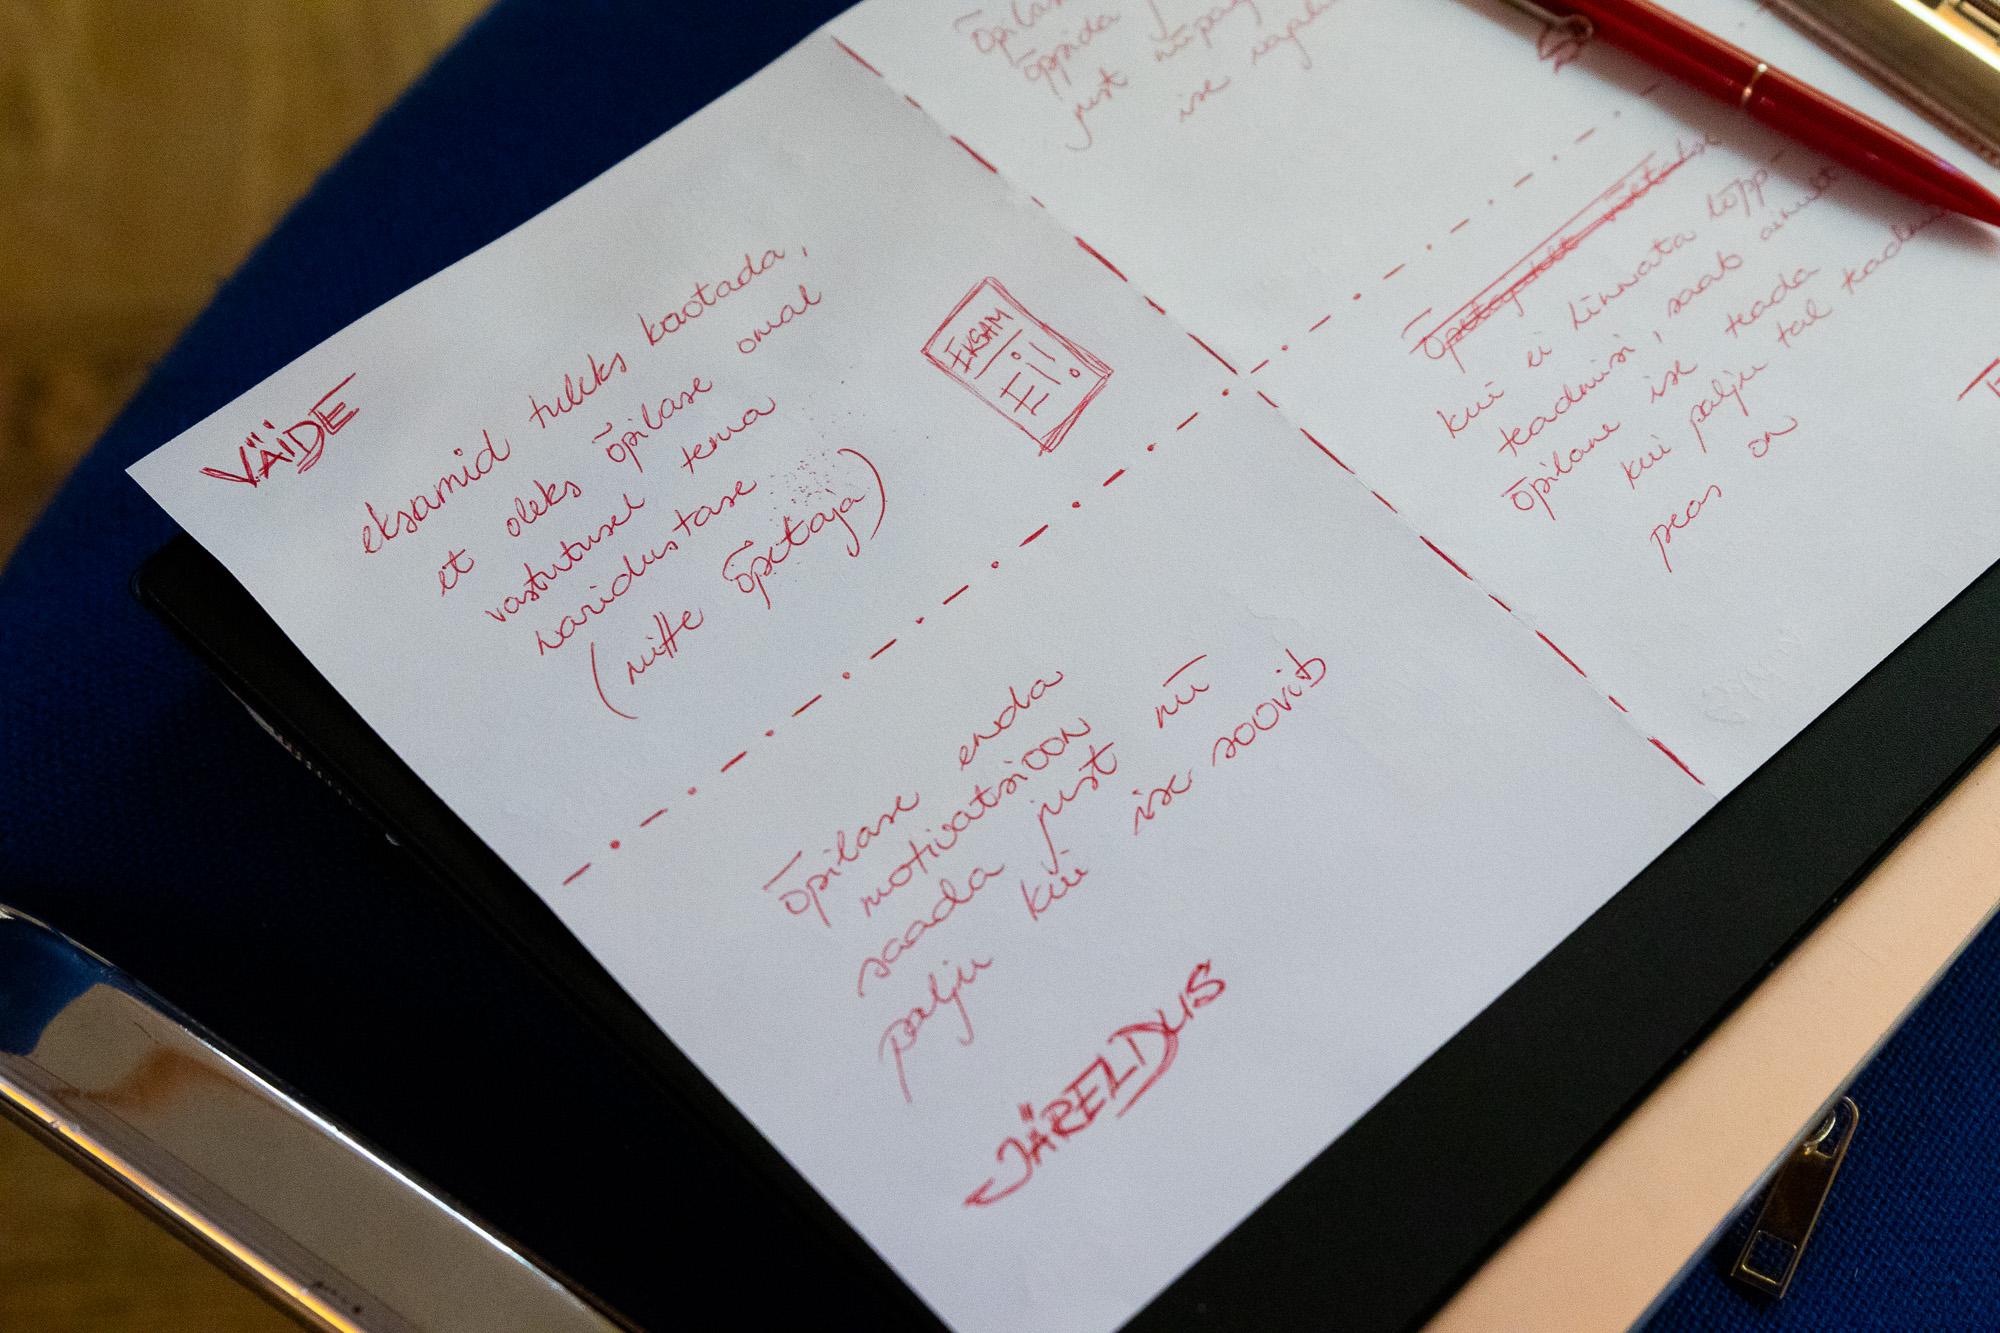 VÄIDE
eksamid tuleks kaotada,
et oleks õpilase omal
vastutusel tema
haridustase
(mitte õpetaja)
EKSAM
EI!
õpilase enda
motivatsioon
saada just nii
palju kui ise soovib
JÄRELDUS
õppida
just niipalju
ise
õpetajatelt
kui ei hinnata õppi-
teadmisi, saab ainult
õpilane ise teada
kui palju tal
peas on